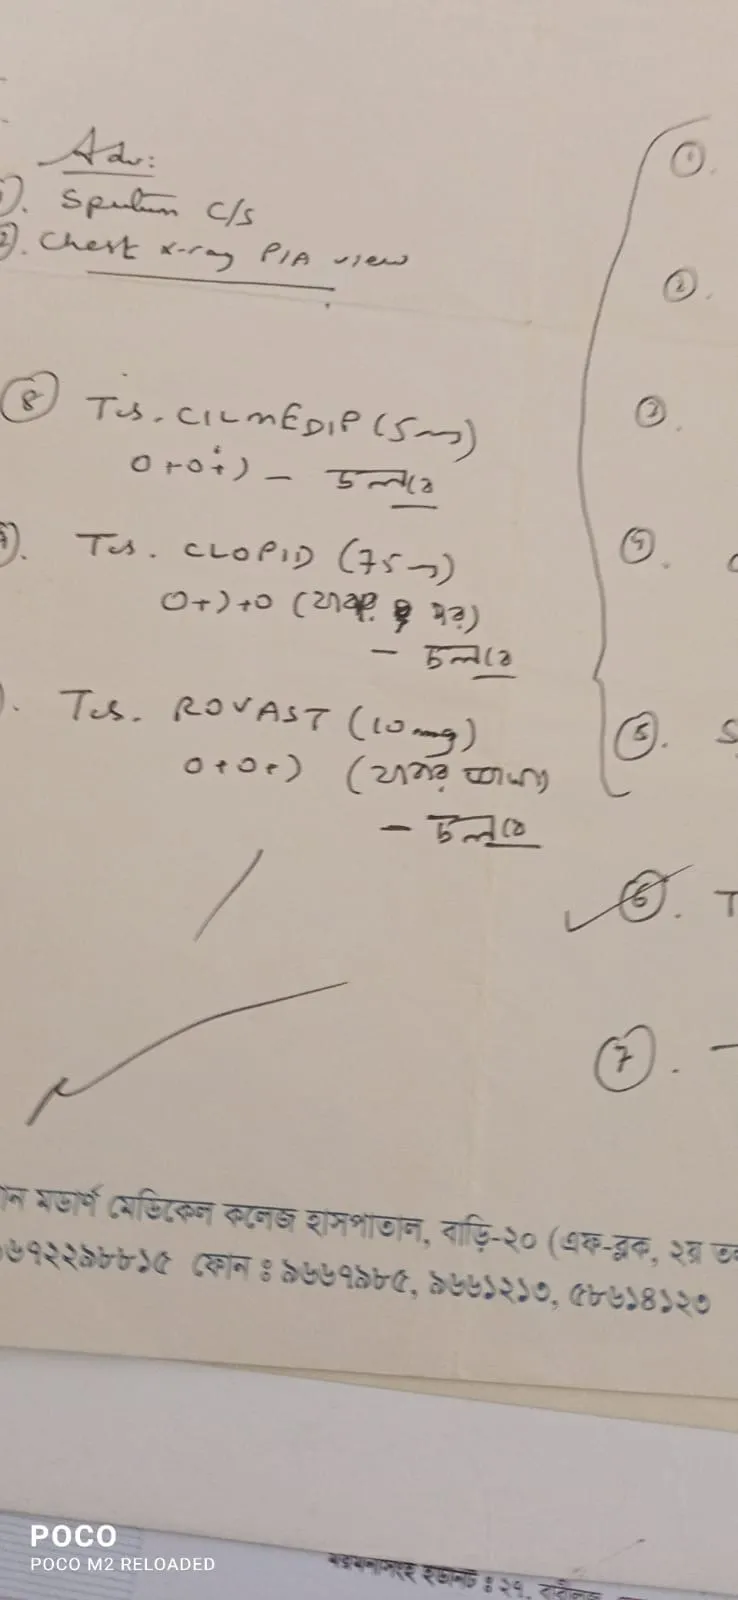 Adv:
1). Sputum C/S
2). Chest x-ray P/A view
8 Tab. CILMEDIP (5mg)
0+0+) – চলবে
9). Tab. CLOPID (75mg)
0+)+0 (খাবার পর)
– চলবে
). Tab. ROVAST (10mg)
0+0+) (খাবার আগে)
– চলবে
1.
2.
3.
4.
5. S
6. T
7.
মডার্ণ মেডিকেল কলেজ হাসপাতাল, বাড়ি-২০ (এফ-ব্লক, ২য়
৬১২২৯৮৮১৫ ফোন : ৯৬৬৭৯৮৫, ৯৬৬১২১৩, ৫৮৬১৪১২৩
POCO
POCO M2 RELOADED